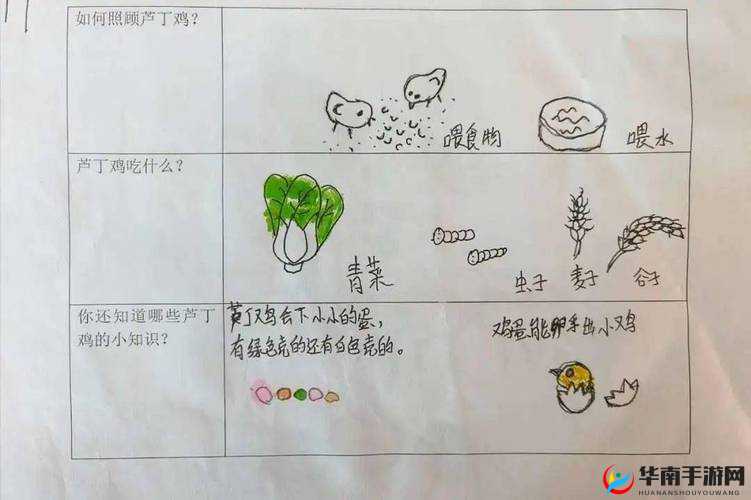 如何照顾芦丁鸡？
喂食物
喂水
芦丁鸡吃什么？
青菜
虫子
麦子
谷子
你还知道哪些芦丁
鸡的小知识？
芦丁鸡会下小小的蛋，
有绿色壳的还有白色壳的。
鸡蛋能孵出小鸡
华南手游网
HUANANSHOUYOUWANG